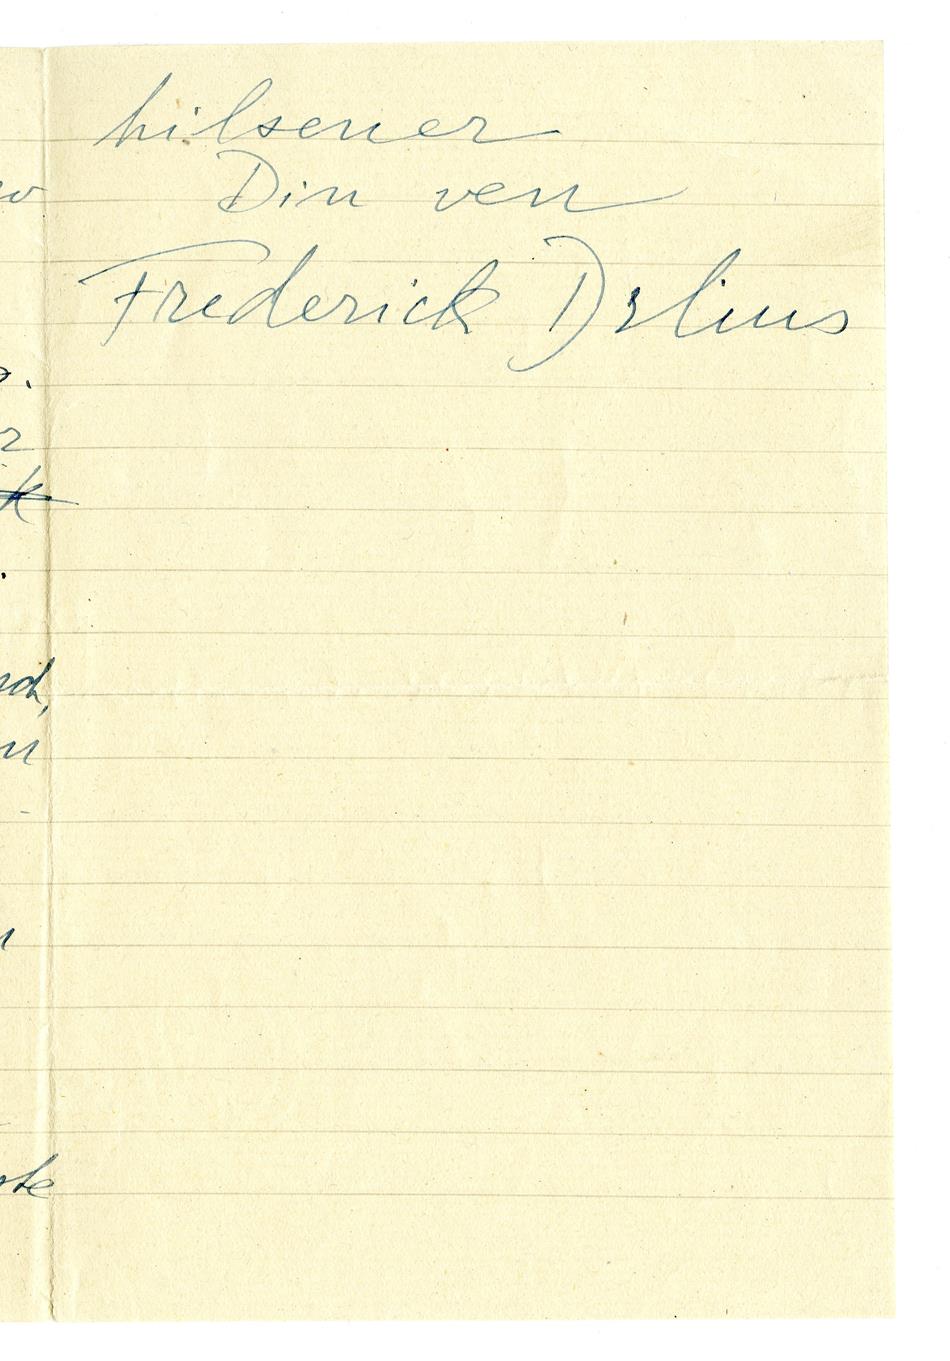 hilsener
Din ven
Frederick Delius